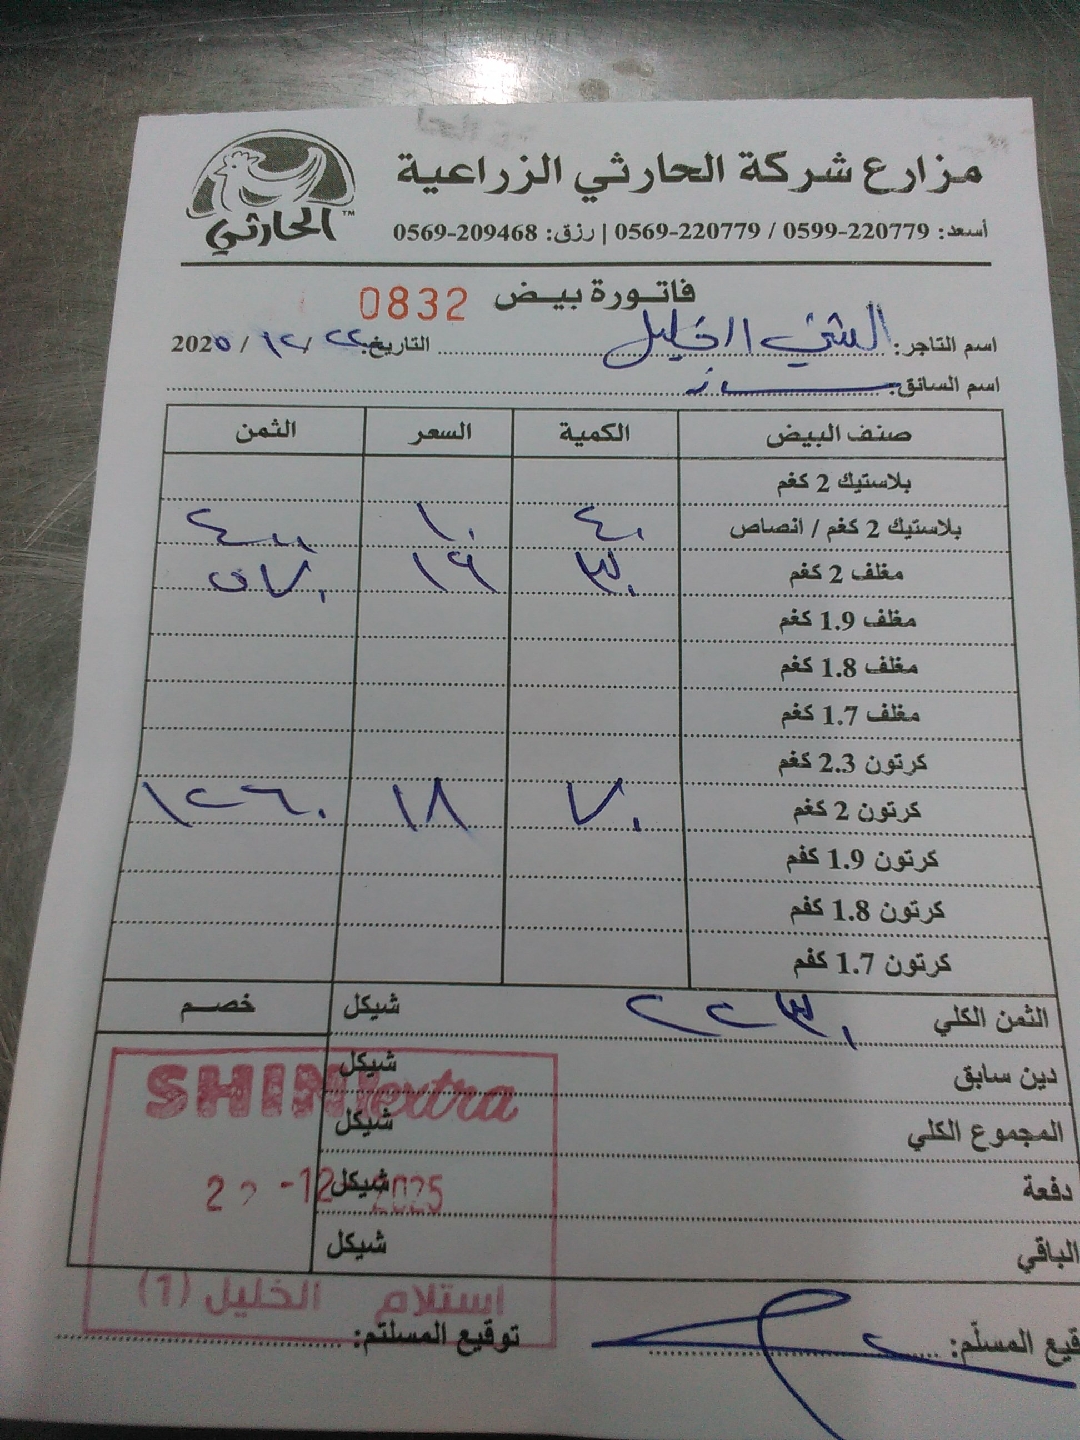 الحارثي™
مزارع شركة الحارثي الزراعية
أسعد: 0599-220779 / 0569-220779 | رزق: 0569-209468
فاتورة بيض 0832
اسم التاجر: الشني / الخليل التاريخ: ٢٢ / ١٢ / 2025
اسم السائق:
صنف البيض الكمية السعر الثمن
بلاستيك 2 كغم
بلاستيك 2 كغم / انصاص ٤٠ ١٠ ٤٠٠
مغلف 2 كغم ٣٠ ١٩ ٥٧٠
مغلف 1.9 كغم
مغلف 1.8 كغم
مغلف 1.7 كغم
كرتون 2.3 كغم
كرتون 2 كغم ٧٠ ١٨ ١٢٦٠
كرتون 1.9 كغم
كرتون 1.8 كغم
كرتون 1.7 كغم
الثمن الكلي ٢٢٣٠ شيكل خصم
دين سابق شيكل
المجموع الكلي شيكل
دفعة شيكل
الباقي شيكل
SHINI extra
22 -12 2025
استلام الخليل (1)
قيع المسلّم: توقيع المستلم: